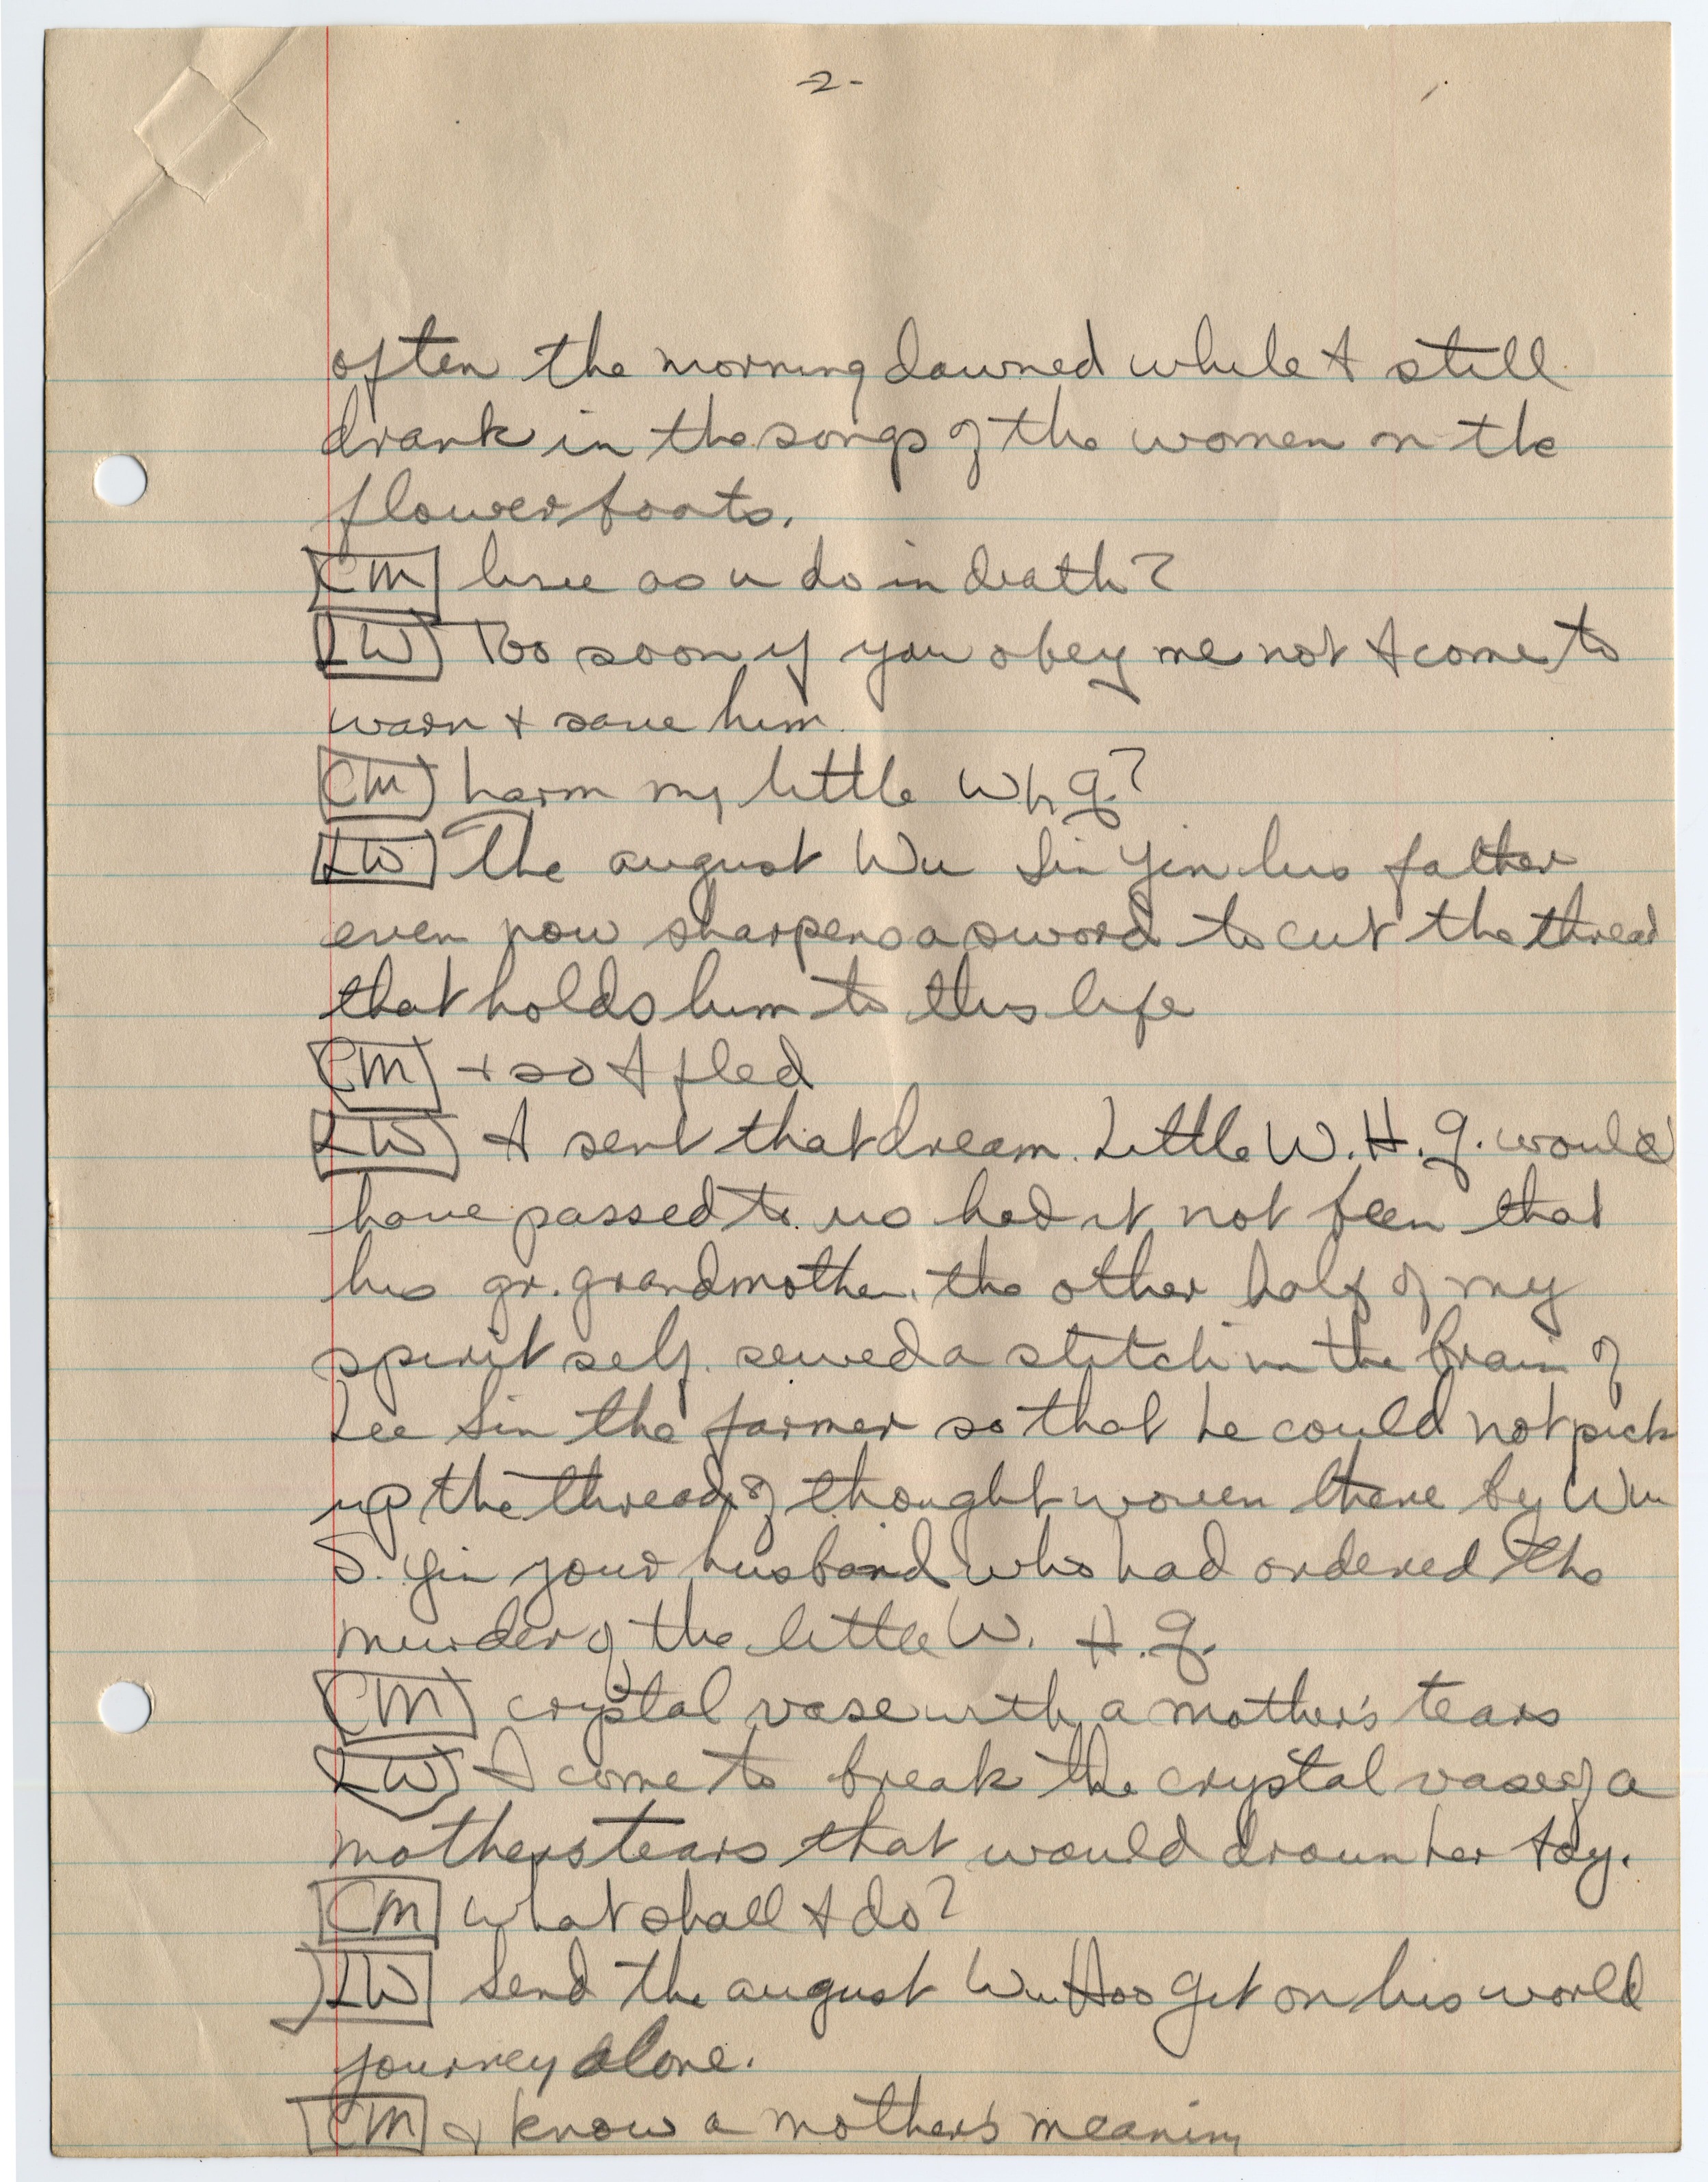 -2-
often the morning dawned while I still
drank in the songs of the women on the
flower boats.
CM live as u do in death?
LW Too soon if you obey me not I come to
warn + save him
CM harm my little W h g?
LW The august Wu Sin Yin his father
even now sharpens a sword to cut the thread
that holds him to this life
CM + so I fled
LW I sent that dream. Little W. H. G. would
have passed to us had it not been that
his gr. grandmother, the other half of my
spirit self. sewed a stitch in the brain of
Lee Sin the farmer so that he could not pick
up the thread of thought woven there by Wu
S. Yin your husband who had ordered the
murder of the little W. H. G.
CM crystal vase with a mother's tears
LW I come to break the crystal vase of a
mothers tears that would drown her toy.
CM what shall I do?
LW Send the august Wu Hoo Git on his world
journey alone.
CM I know a mother's meaning